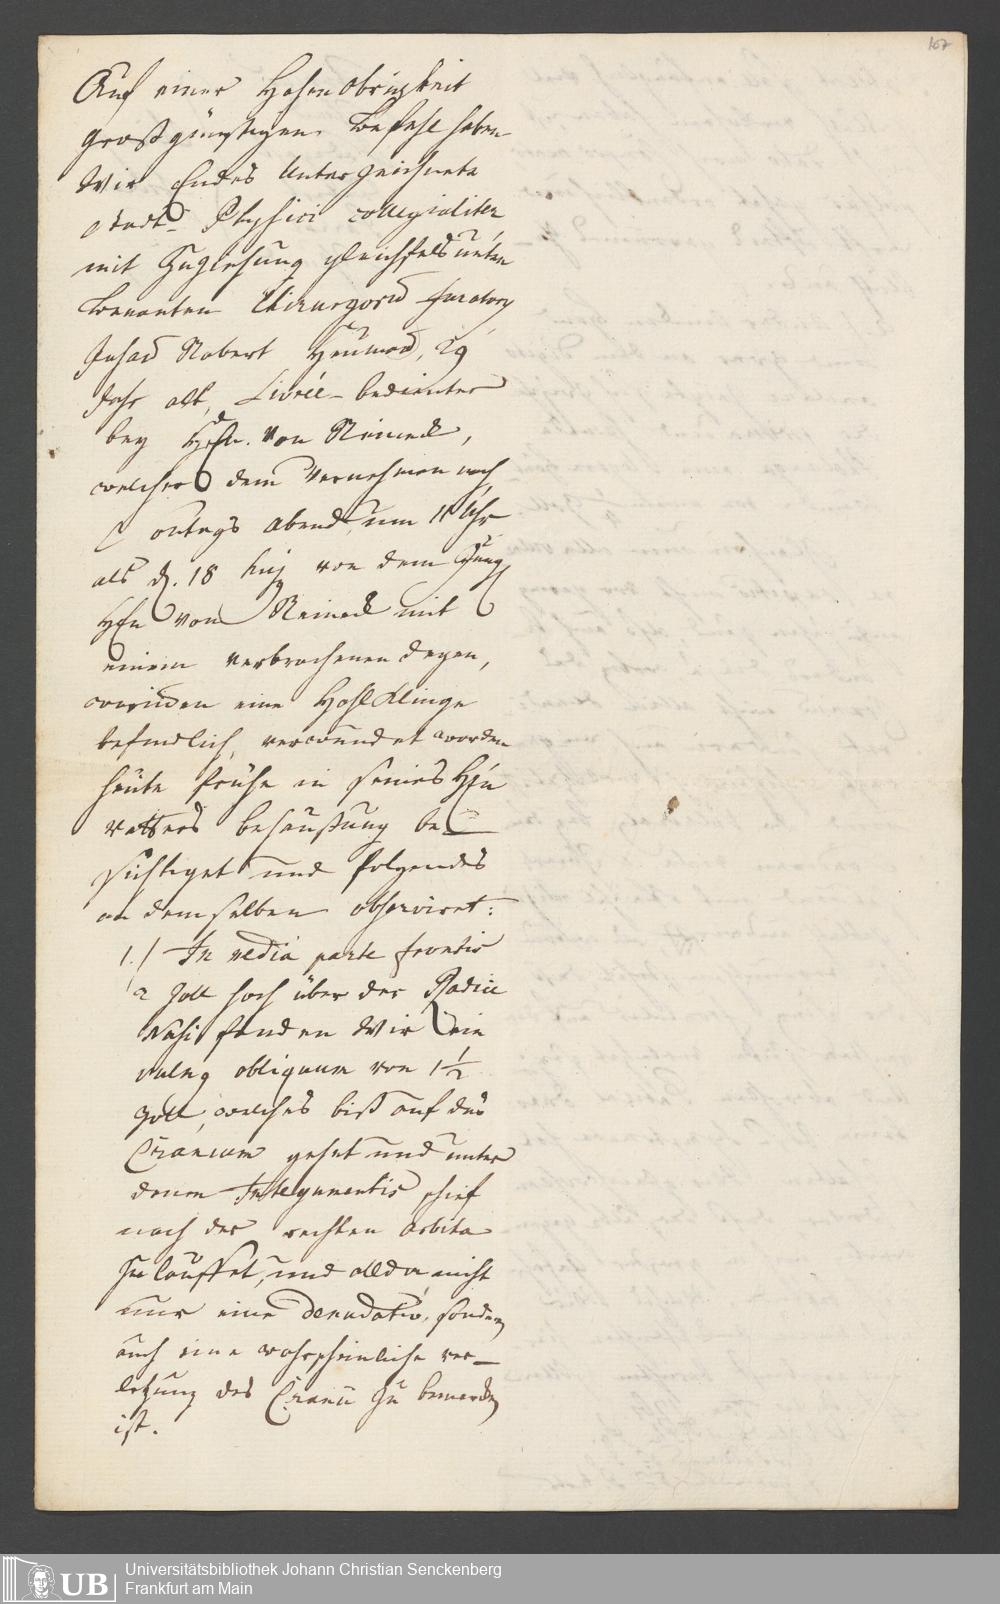 107
Auf einer Hohen Obrigkeit
großgünstigen Befehl haben
Wir Endes Unterzeichnete
Stadt-Physici collegialiter
mit Zuziehung gleichfals unten
benanten Chirurgorum Juratory
Johann Robert 29
Jahr alt, Livrée-bedienter
bey HEn. von Reineck,
welcher dem Vernehmen nach
abend um 11 Uhr
als d. 18 huj von dem Jung
HEn von Reineck mit
einem verbrochenen degen,
worinnen eine HohlKlinge
befindlich, verwundet worden
heute frühe in seines HEn
Vatters behaußung be-
sichtiget und folgendes
an demselben observiret:
1.) In media parte frontis
2 Zoll hoch über der Radice
Nasi fanden Wir ein
vulny obliquum von 1 1/2
Zoll, welches biß auf das
Cranium gehet und unter
denen Integumentis schief
nach der rechten orbita
zu lauffet, und allda nicht
nur eine denudatio, sondern
auch eine wahrscheinliche ver-
letzung des Cranii zu bemerken
ist.
UB
Universitätsbibliothek Johann Christian Senckenberg
Frankfurt am Main